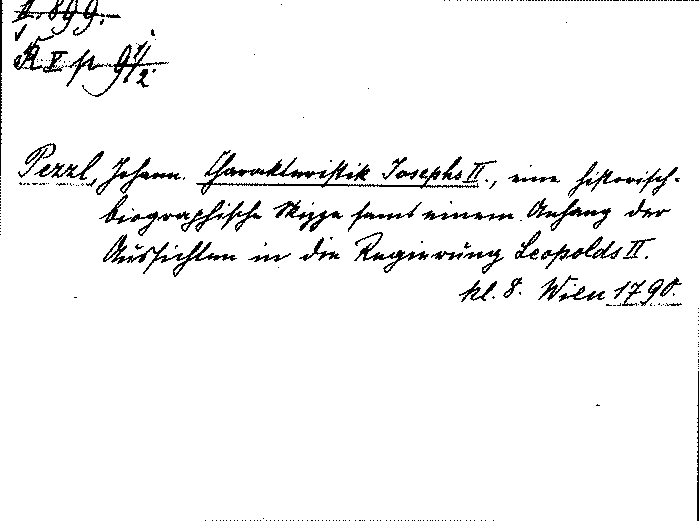 I. 899.
K V p 91/2
Pezzl, Johann. Charakteristik Josephs II., eine historisch-
biographische Skizze samt einem Anhang der
Aussichten in die Regierung Leopolds II.
kl. 8. Wien 1790.